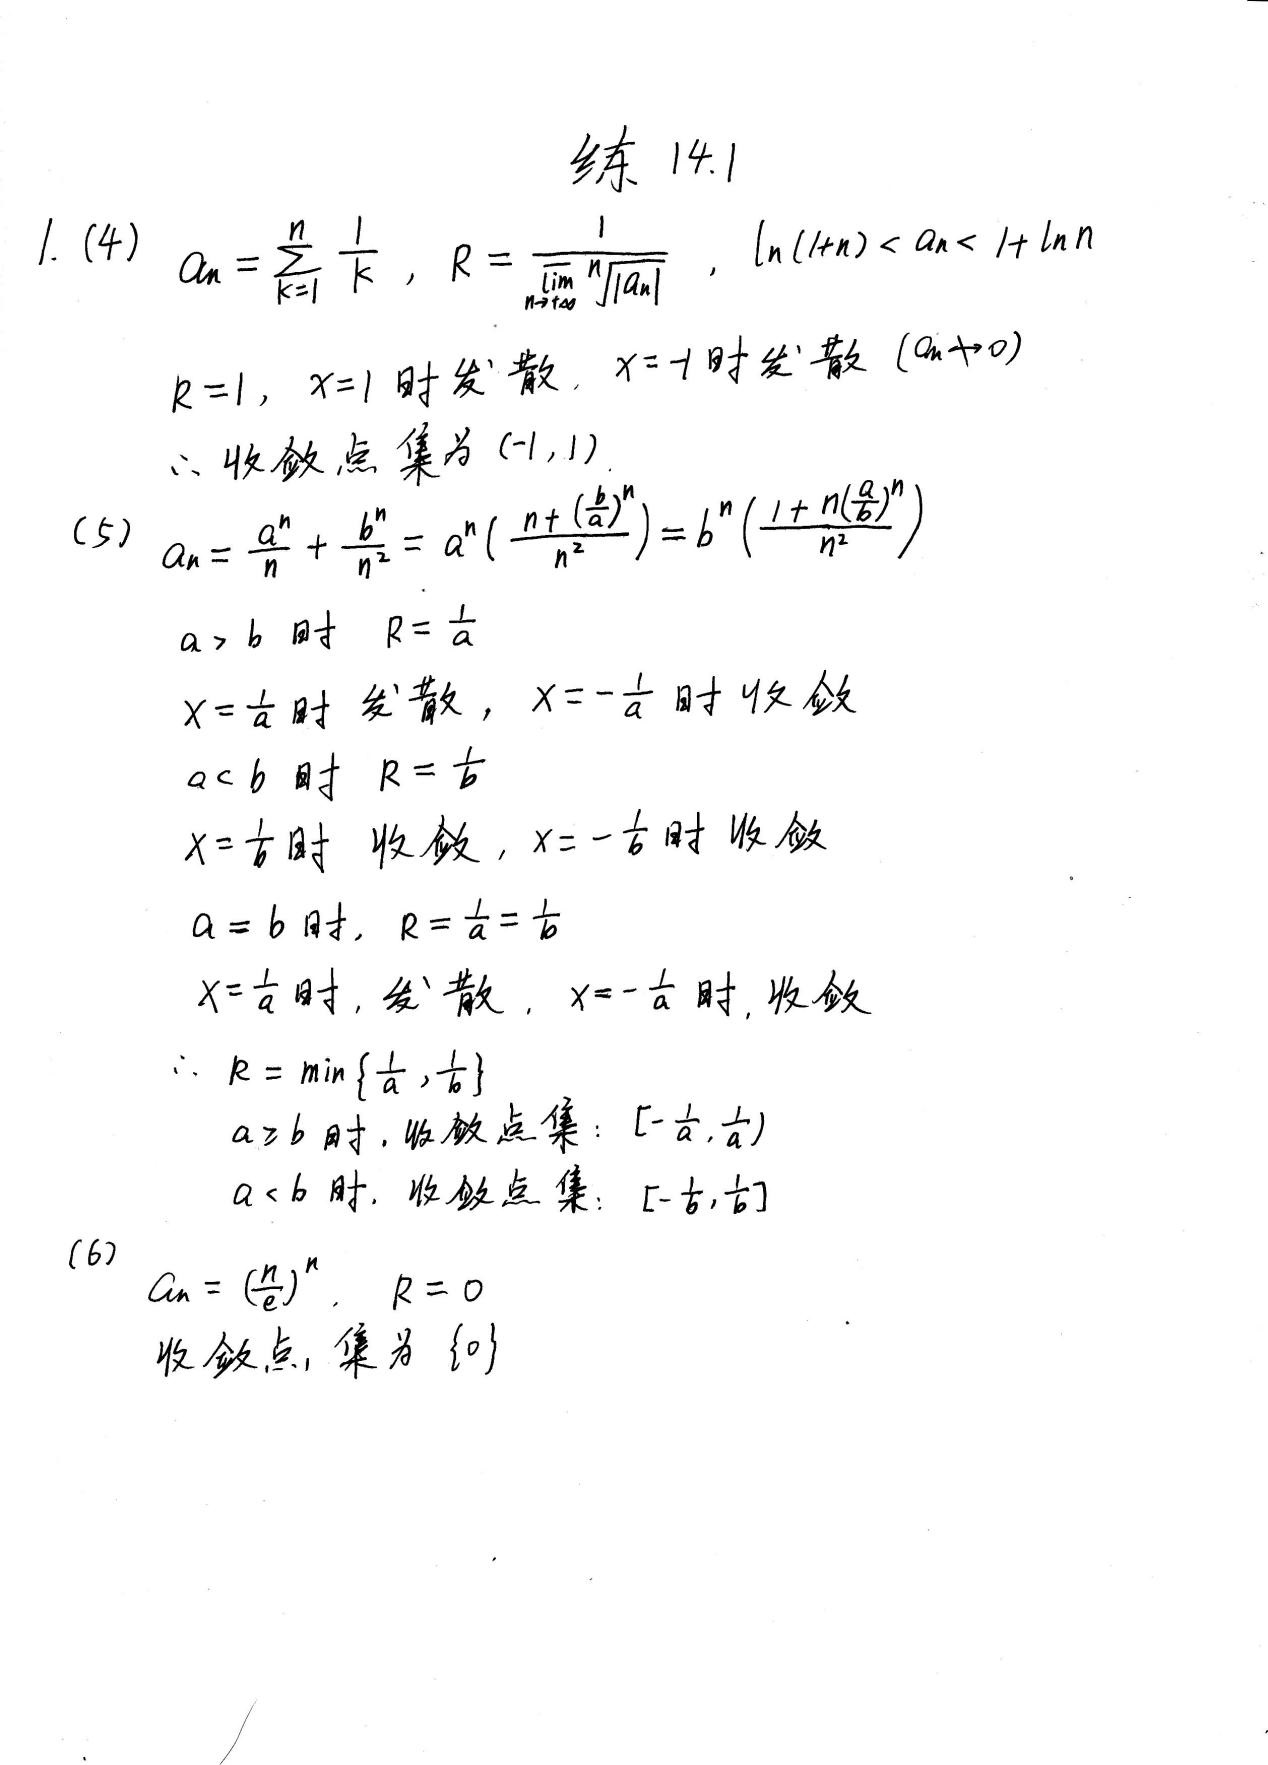 练 14.1
1. (4) aₙ = ∑_{k=1}^{n} 1/k , R = 1/(\overline{lim}_{n→+∞} ⁿ√|aₙ|) , ln(1+n) < aₙ < 1+ln n
R=1, x=1 时发散. x=-1时发散 (aₙ↛0)
∴ 收敛点集为 (-1,1).
(5) aₙ = aⁿ/n + bⁿ/n² = aⁿ( (n+(b/a)ⁿ)/n² ) = bⁿ( (1+n(a/b)ⁿ)/n² )
a > b 时 R = 1/a
x = 1/a 时 发散, x = -1/a 时 收敛
a < b 时 R = 1/b
x = 1/b 时 收敛, x = -1/b 时 收敛
a = b 时, R = 1/a = 1/b
x = 1/a 时, 发散, x = -1/a 时, 收敛
∴ R = min{1/a, 1/b}
a ≥ b 时, 收敛点集: [-1/a, 1/a)
a < b 时. 收敛点集: [-1/b, 1/b]
(6) aₙ = (n/e)ⁿ. R = 0
收敛点集为 {0}